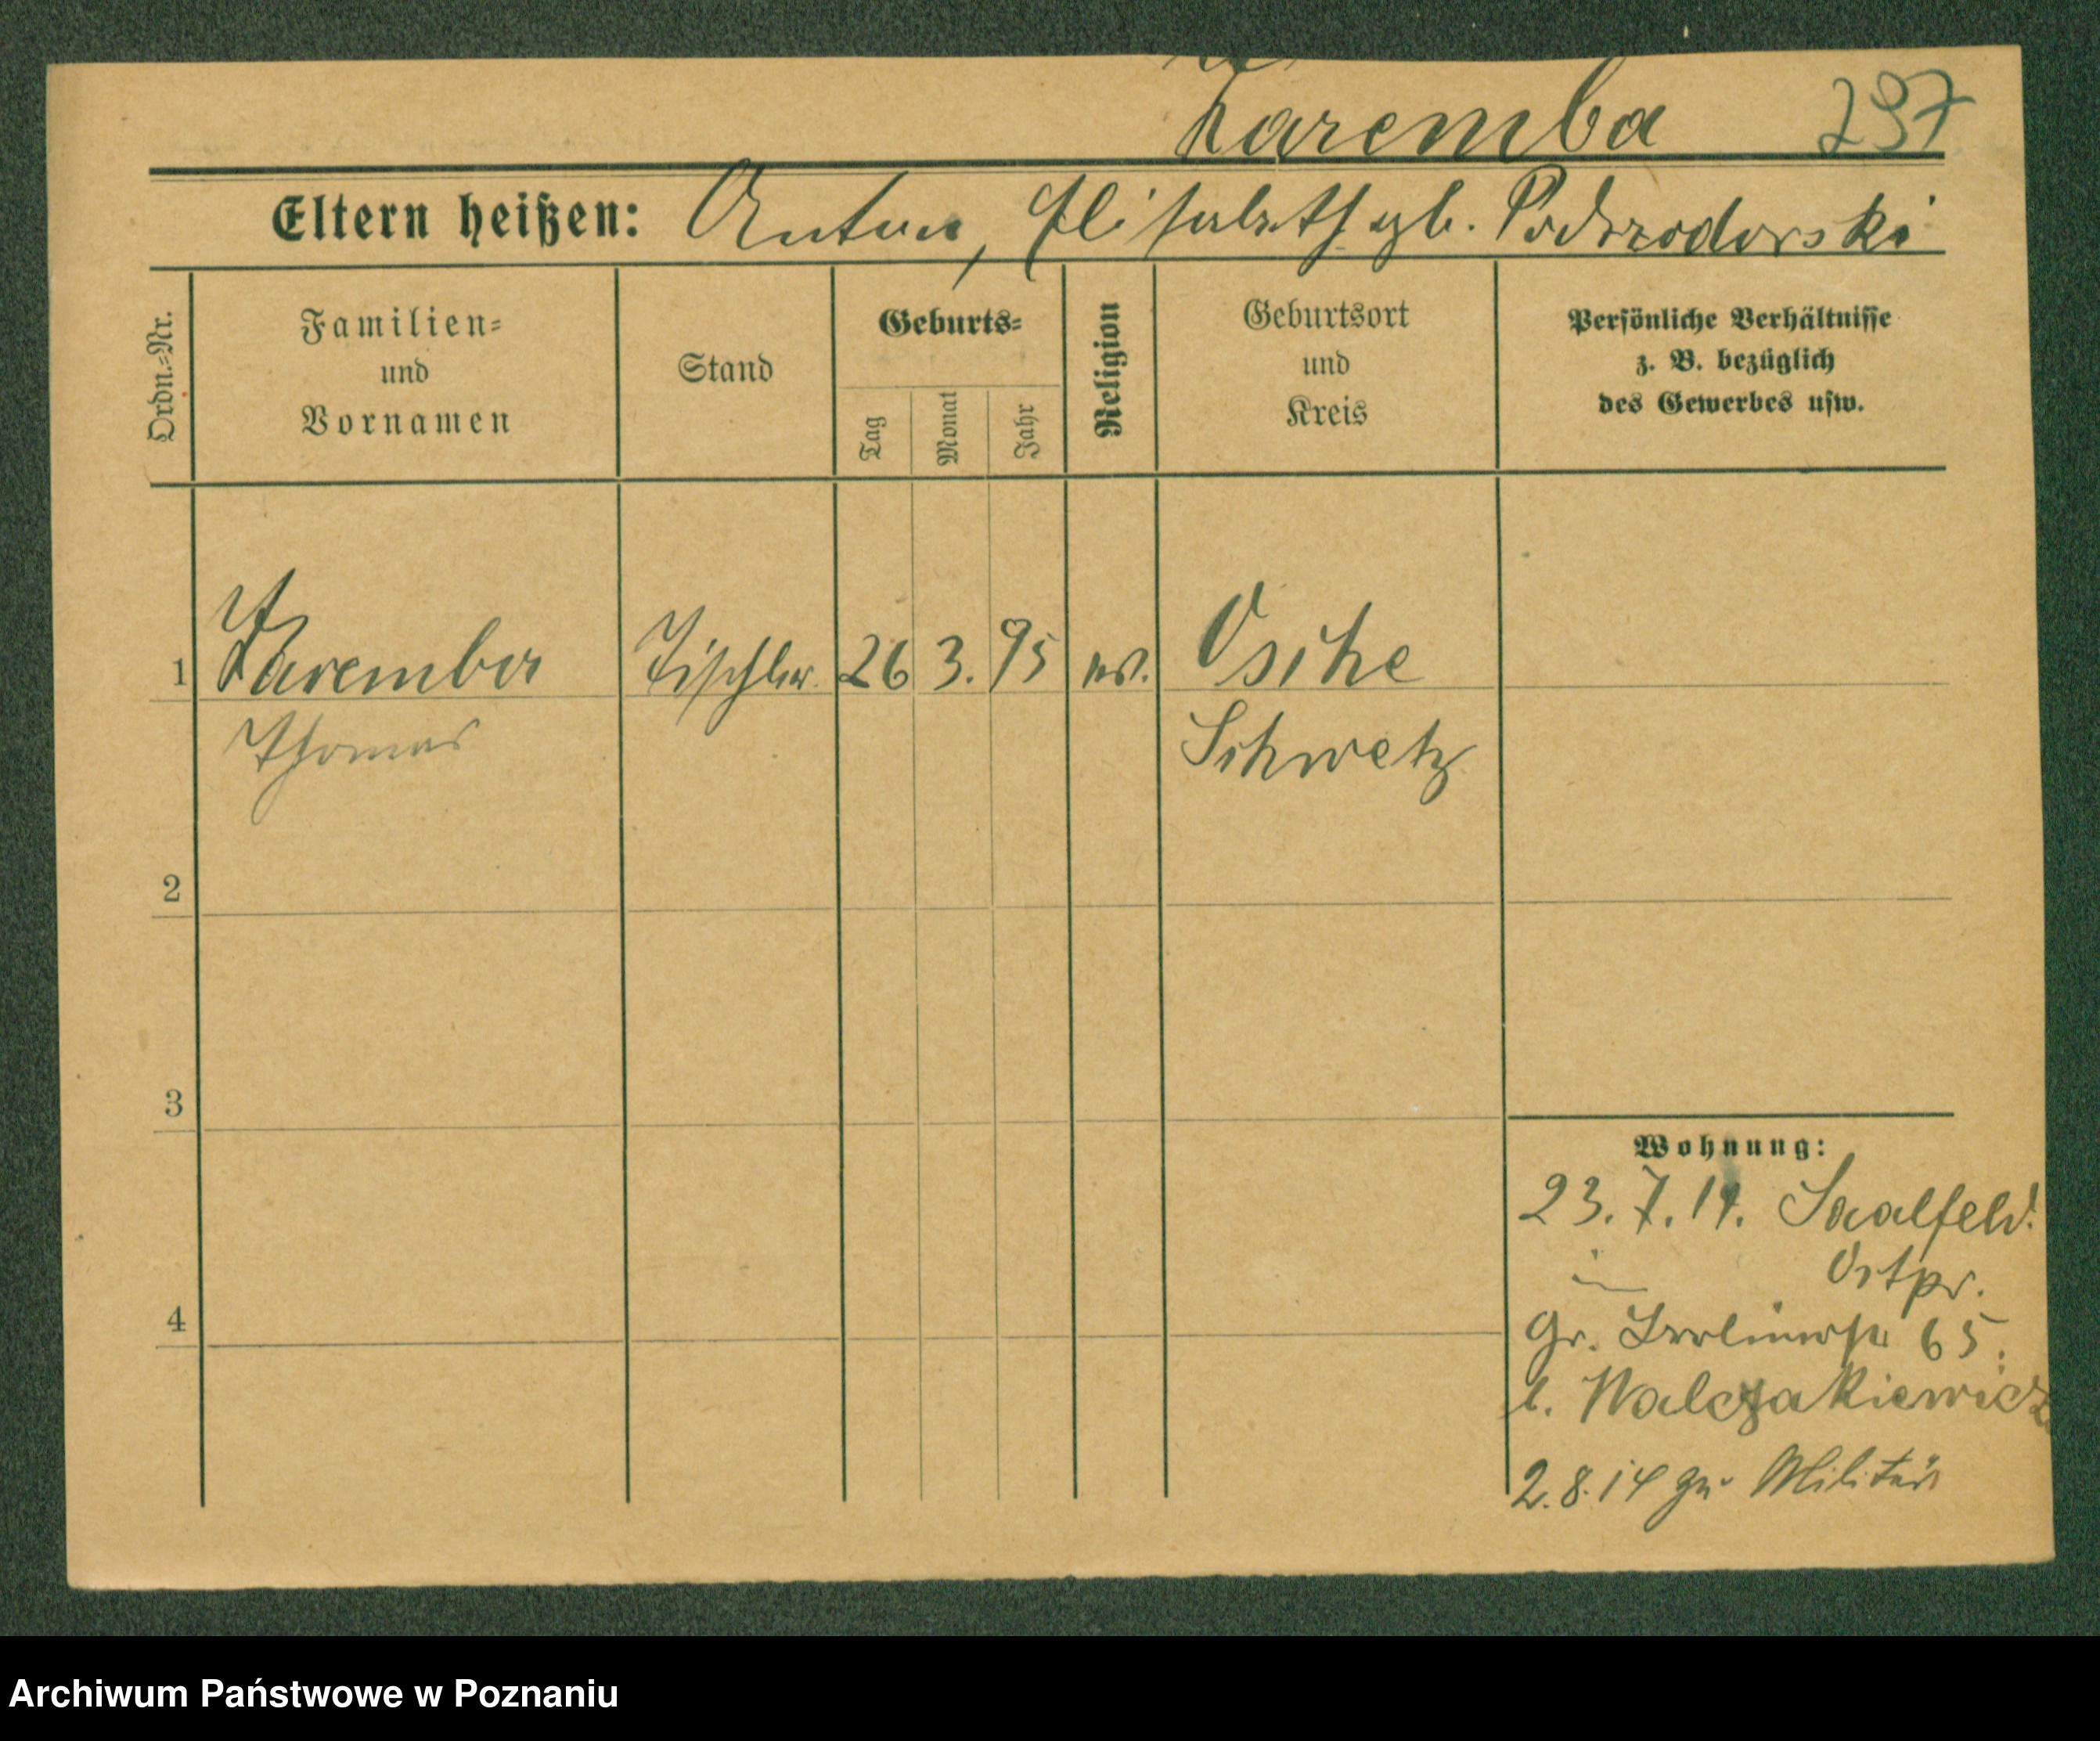 Zaremba 297
Eltern heißen: Anton, Elisabeth gb.
Ordn.=Nr.
Familien=
und
Vornamen
Stand
Geburts=
Tag
Monat
Jahr
Religion
Geburtsort
und
Kreis
Persönliche Verhältnisse
z. B. bezüglich
des Gewerbes usw.
1 Zaremba Tischler 26 3. 95 Osche
Thomas Schwetz
2
3
Wohnung:
23. 7. 14. Saalfeld.
in Ostpr.
4
Gr. Berlinerstr 65.
b. Walczakiewicz
2.8.14 zu Militär
Archiwum Państwowe w Poznaniu